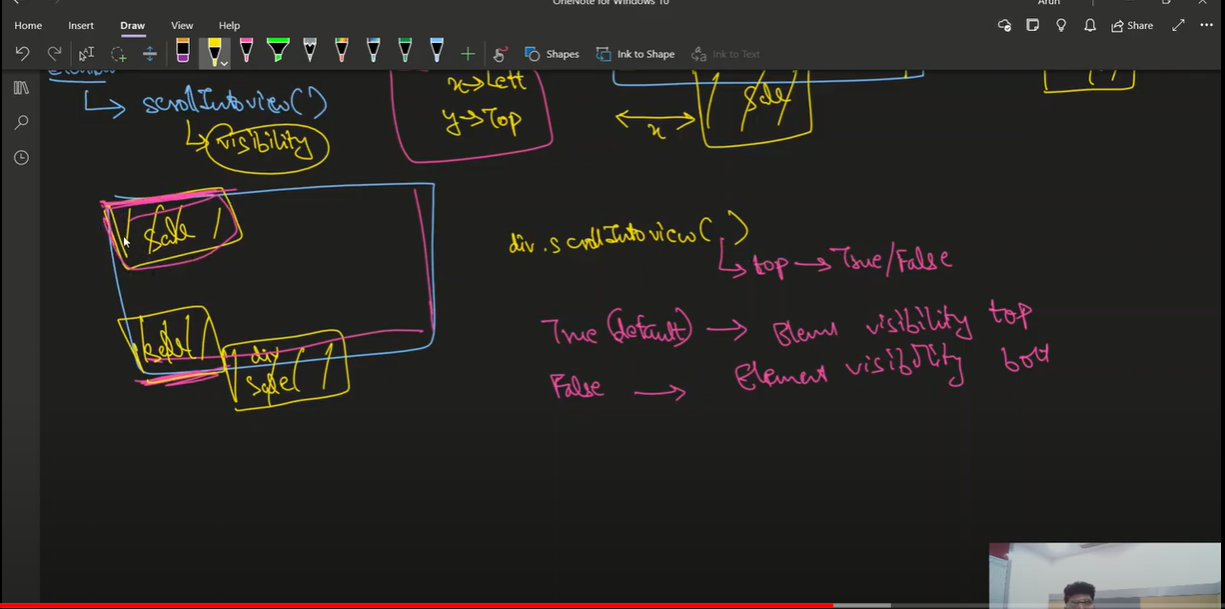 OneNote for Windows 10
Arun
Home Insert Draw View Help
Share
Shapes
Ink to Shape
Ink to Text
scrollIntoview()
visibility
x→Left
y→Top
x
sale
sale
div
div.scrollIntoview()
top → True/False
True (default) → Element visibility top
False → Element visibility bott